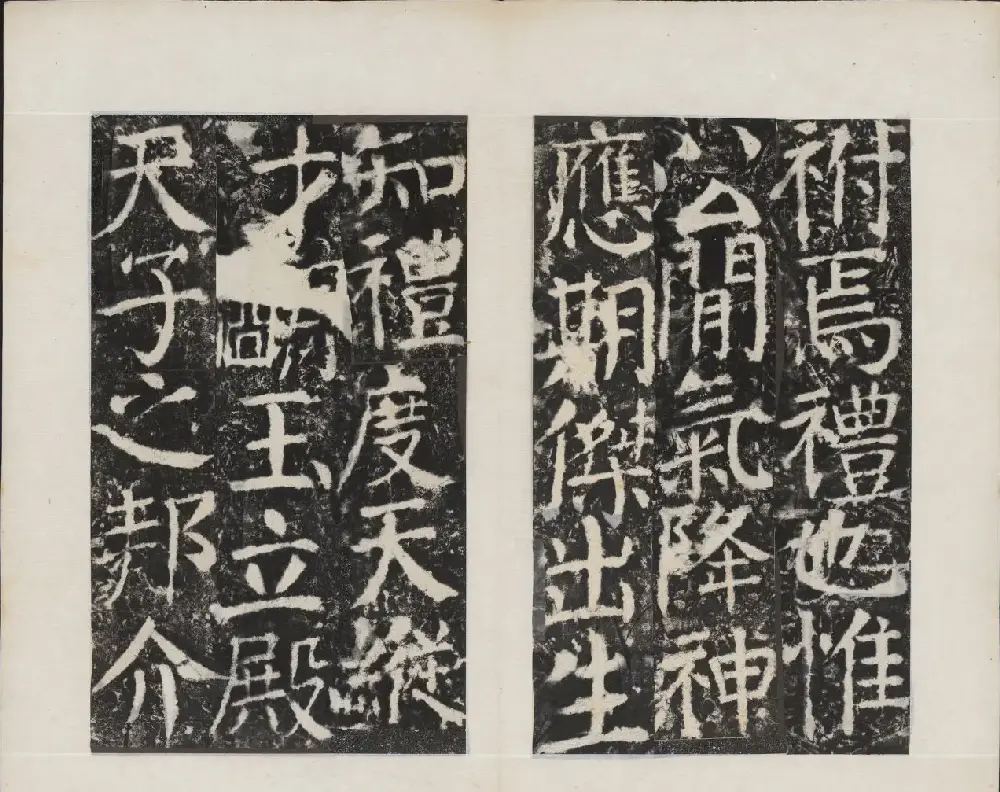 祔焉禮也惟
公閒氣降神
應期傑出生
知禮度天縱
才朙玉立殿
天子之邦介